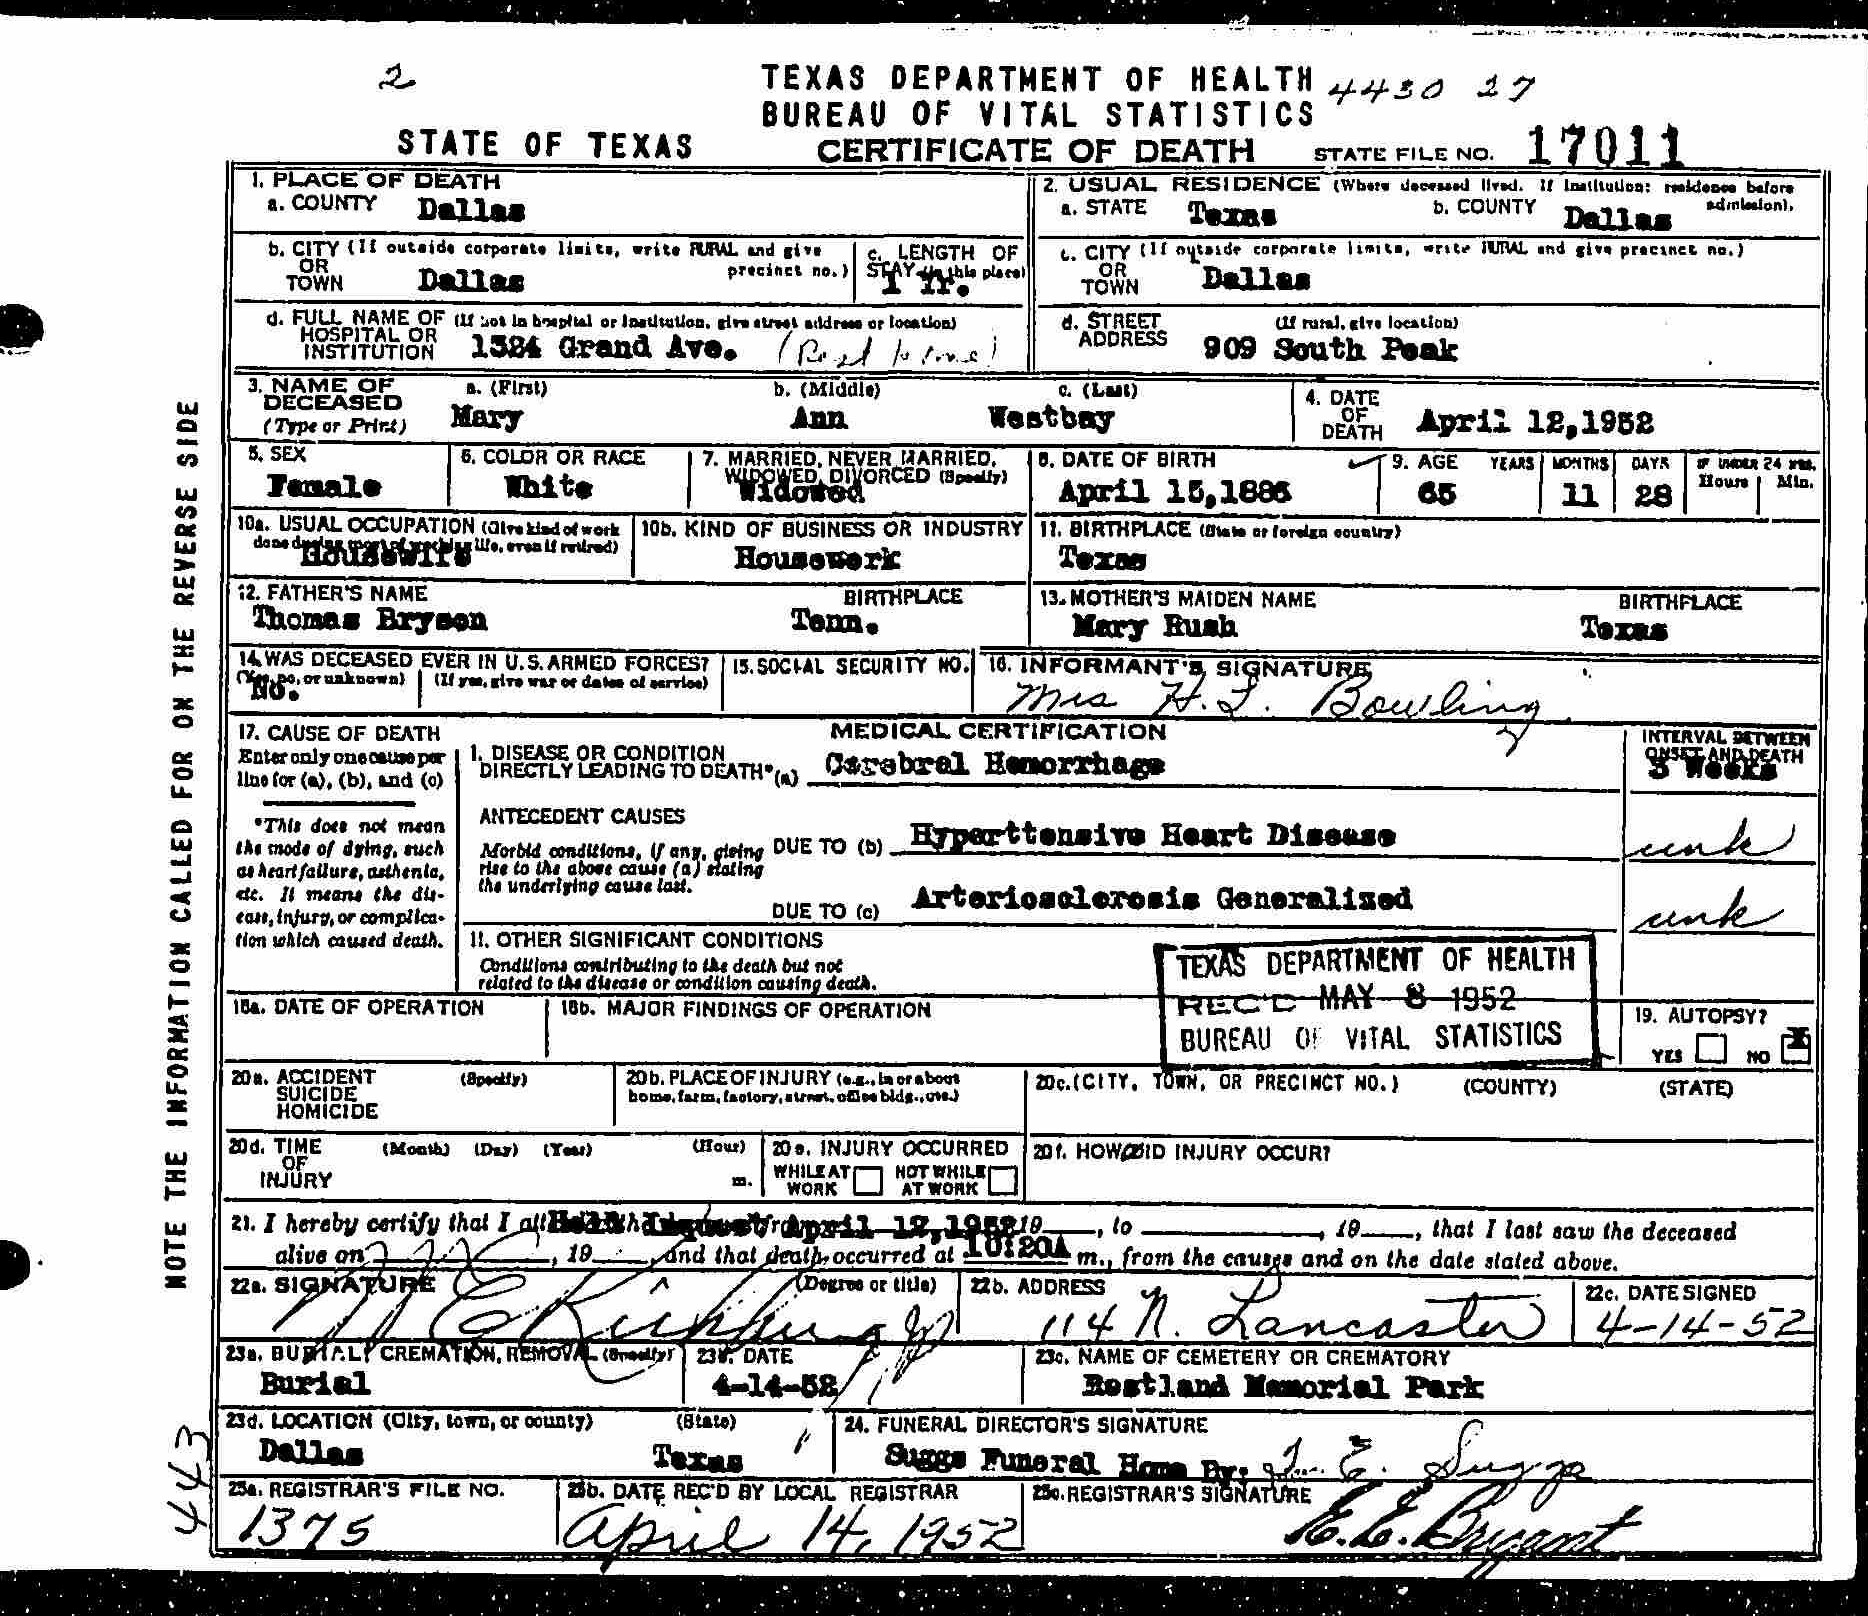 2
TEXAS DEPARTMENT OF HEALTH 4430 27
BUREAU OF VITAL STATISTICS
STATE OF TEXAS CERTIFICATE OF DEATH STATE FILE NO. 17011
NOTE THE INFORMATION CALLED FOR ON THE REVERSE SIDE
443
1. PLACE OF DEATH
a. COUNTY Dallas
2. USUAL RESIDENCE (Where deceased lived. If institution: residence before admission).
a. STATE Texas b. COUNTY Dallas
b. CITY (If outside corporate limits, write RURAL and give precinct no.)
OR
TOWN Dallas
c. LENGTH OF
STAY (in this place)
1 Yr.
c. CITY (If outside corporate limits, write RURAL and give precinct no.)
OR
TOWN Dallas
d. FULL NAME OF (If not in hospital or institution, give street address or location)
HOSPITAL OR
INSTITUTION 1524 Grand Ave. (Rest home)
d. STREET (If rural, give location)
ADDRESS 909 South Peak
3. NAME OF a. (First) b. (Middle) c. (Last)
DECEASED
(Type or Print) Mary Ann Westbay
4. DATE
OF
DEATH April 12,1952
5. SEX
Female
6. COLOR OR RACE
White
7. MARRIED, NEVER MARRIED,
WIDOWED, DIVORCED (Specify)
Widowed
8. DATE OF BIRTH
April 15,1886
9. AGE YEARS MONTHS DAYS IF UNDER 24 HRS.
Hours Min.
65 11 28
10a. USUAL OCCUPATION (Give kind of work
done during most of working life, even if retired)
Housewife
10b. KIND OF BUSINESS OR INDUSTRY
Housework
11. BIRTHPLACE (State or foreign country)
Texas
12. FATHER'S NAME BIRTHPLACE
Thomas Bryson Tenn.
13. MOTHER'S MAIDEN NAME BIRTHPLACE
Mary Rush Texas
14. WAS DECEASED EVER IN U.S. ARMED FORCES?
(Yes, no, or unknown) (If yes, give war or dates of service)
No.
15. SOCIAL SECURITY NO.
16. INFORMANT'S SIGNATURE
Mrs H. L. Bowling
17. CAUSE OF DEATH
Enter only one cause per
line for (a), (b), and (c)
*This does not mean
the mode of dying, such
as heart failure, asthenia,
etc. It means the dis-
ease, injury, or complica-
tion which caused death.
MEDICAL CERTIFICATION
I. DISEASE OR CONDITION
DIRECTLY LEADING TO DEATH* (a) Cerebral Hemorrhage
INTERVAL BETWEEN
ONSET AND DEATH
3 Weeks
ANTECEDENT CAUSES
Morbid conditions, if any, giving
rise to the above cause (a) stating
the underlying cause last.
DUE TO (b) Hyperttensive Heart Disease unk
DUE TO (c) Arteriosclerosis Generalized unk
II. OTHER SIGNIFICANT CONDITIONS
Conditions contributing to the death but not
related to the disease or condition causing death.
TEXAS DEPARTMENT OF HEALTH
REC'D MAY 8 1952
BUREAU OF VITAL STATISTICS
18a. DATE OF OPERATION
18b. MAJOR FINDINGS OF OPERATION
19. AUTOPSY?
YES NO X
20a. ACCIDENT (Specify)
SUICIDE
HOMICIDE
20b. PLACE OF INJURY (e.g., in or about
home, farm, factory, street, office bldg., etc.)
20c. (CITY, TOWN, OR PRECINCT NO.) (COUNTY) (STATE)
20d. TIME (Month) (Day) (Year) (Hour)
OF
INJURY m.
20e. INJURY OCCURRED
WHILE AT WORK NOT WHILE AT WORK
20f. HOW DID INJURY OCCUR?
21. I hereby certify that I Held Inquest April 12,1952 19, to , 19, that I last saw the deceased
alive on , 19 and that death occurred at 10:20A m., from the causes and on the date stated above.
22a. SIGNATURE (Degree or title)
22b. ADDRESS
114 N. Lancaster
22c. DATE SIGNED
4-14-52
23a. BURIAL, CREMATION, REMOVAL (Specify)
Burial
23b. DATE
4-14-52
23c. NAME OF CEMETERY OR CREMATORY
Restland Memorial Park
23d. LOCATION (City, town, or county) (State)
Dallas Texas
24. FUNERAL DIRECTOR'S SIGNATURE
Suggs Funeral Home By: E. Suggs
25a. REGISTRAR'S FILE NO.
1375
25b. DATE REC'D BY LOCAL REGISTRAR
April 14, 1952
25c. REGISTRAR'S SIGNATURE
E. E. Bryant